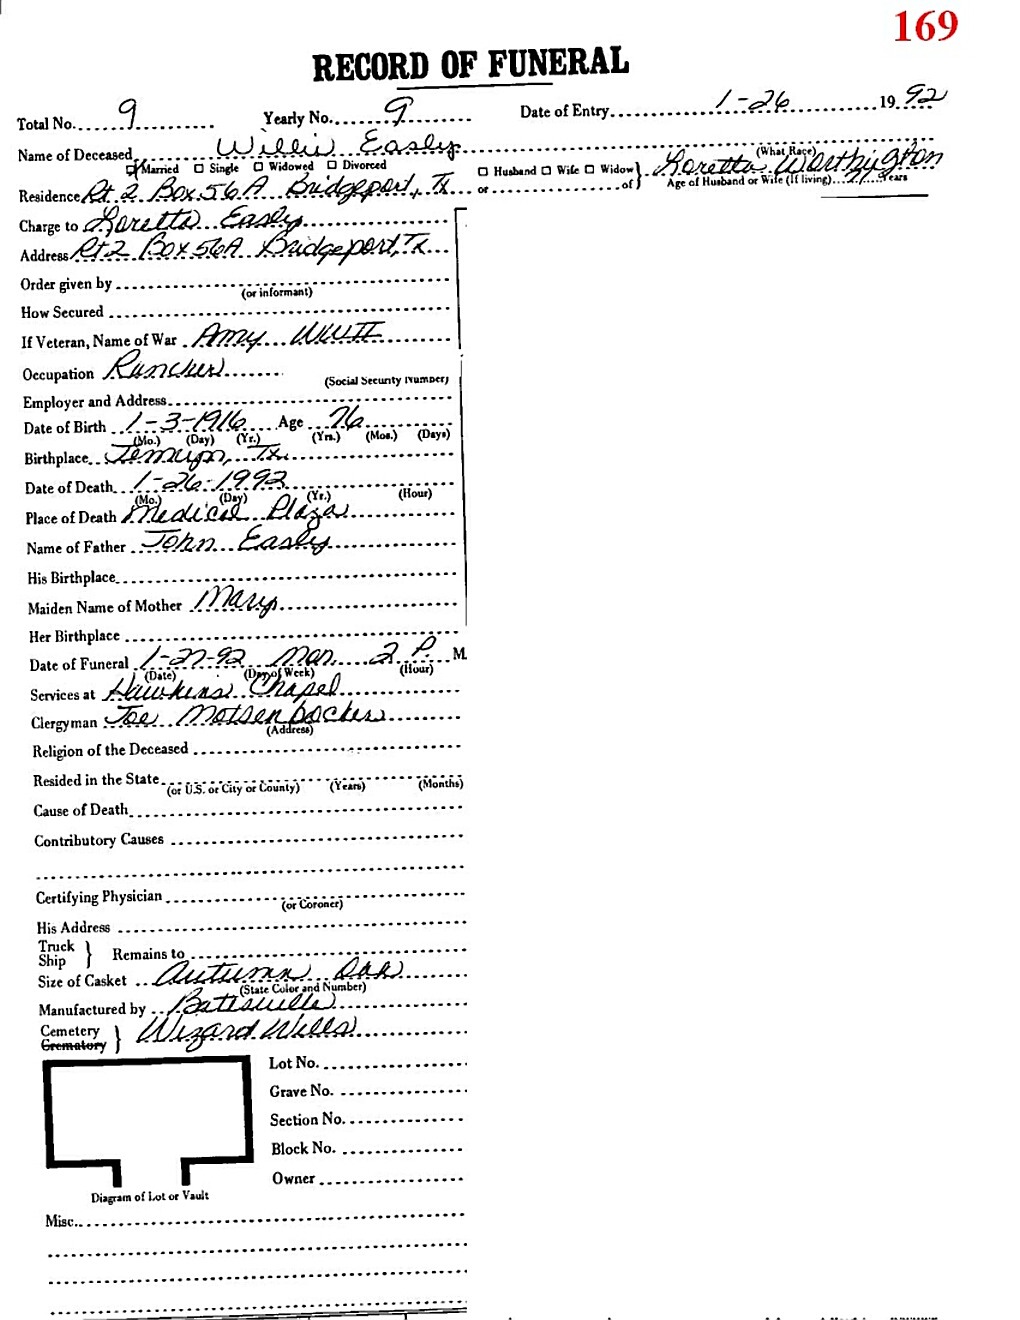 169
RECORD OF FUNERAL
Total No. 9 Yearly No. 9 Date of Entry 1-26 1992
Name of Deceased Willie Easly (What Race)
Married Single Widowed Divorced Husband Wife Widow or of } Loretta Worthington
Residence Rt 2 Box 56A Bridgeport, Tx Age of Husband or Wife (If living) Years
Charge to Loretta Easly
Address Rt 2 Box 56A Bridgeport, Tx
Order given by
(or informant)
How Secured
If Veteran, Name of War Army WWII
Occupation Rancher
(Social Security Number)
Employer and Address
Date of Birth 1-3-1916 Age 76
(Mo.) (Day) (Yr.) (Yrs.) (Mos.) (Days)
Birthplace Jermyn, Tx
Date of Death 1-26-1992
(Mo.) (Day) (Yr.) (Hour)
Place of Death Medical Plaza
Name of Father John Easly
His Birthplace
Maiden Name of Mother Mary
Her Birthplace
Date of Funeral 1-27-92 Mon. 2 P. M.
(Date) (Day of Week) (Hour)
Services at Hawkins Chapel
Clergyman Joe Motsenbocker
(Address)
Religion of the Deceased
Resided in the State
(or U.S. or City or County) (Years) (Months)
Cause of Death
Contributory Causes
Certifying Physician
(or Coroner)
His Address
Truck
Ship } Remains to
Size of Casket Autumn Oak
(State Color and Number)
Manufactured by Batesville
Cemetery
Crematory } Wizard Wells
Lot No.
Grave No.
Section No.
Block No.
Owner
Diagram of Lot or Vault
Misc.